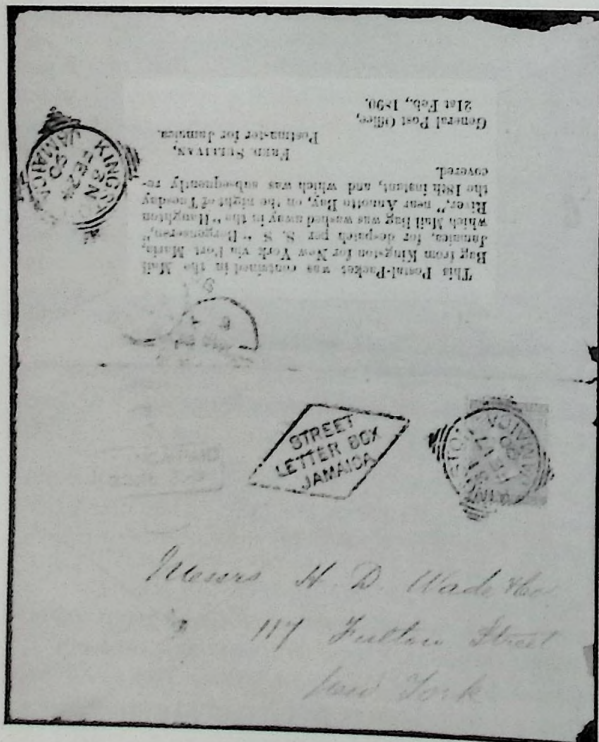 This Postal-Packet was contained in the Mail
Bag from Kingston for New York via Port Maria,
Jamaica, for despatch per S. S. "Bergenseren,"
which Mail Bag was washed away in the "Haughton
River," near Annotto Bay, on the night of Tuesday
the 18th instant, and which was subsequently re-
covered.
FRED. SULLIVAN,
Postmaster for Jamaica.
General Post Office,
21st Feb., 1890.
KINGSTON
JAMAICA
STREET
LETTER BOX
JAMAICA
KINGSTON JAMAICA
Messrs H. D. Wade & Co
117 Fulton Street
New York